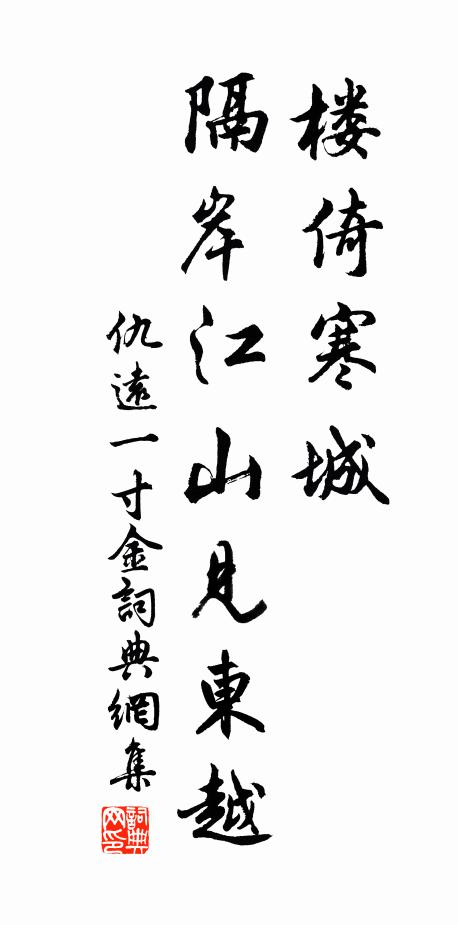 楼倚寒城
隔岸江山見東越
仇遠一寸金詞典網集
詞典
网印